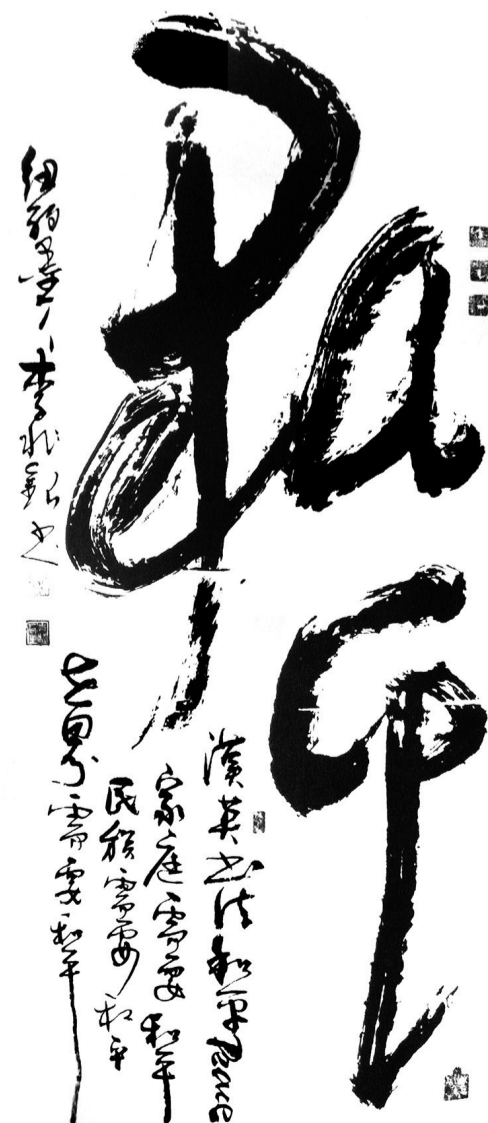 和平
漢英书法和平Peace
家庭需要和平
民族需要和平
世界需要和平
书